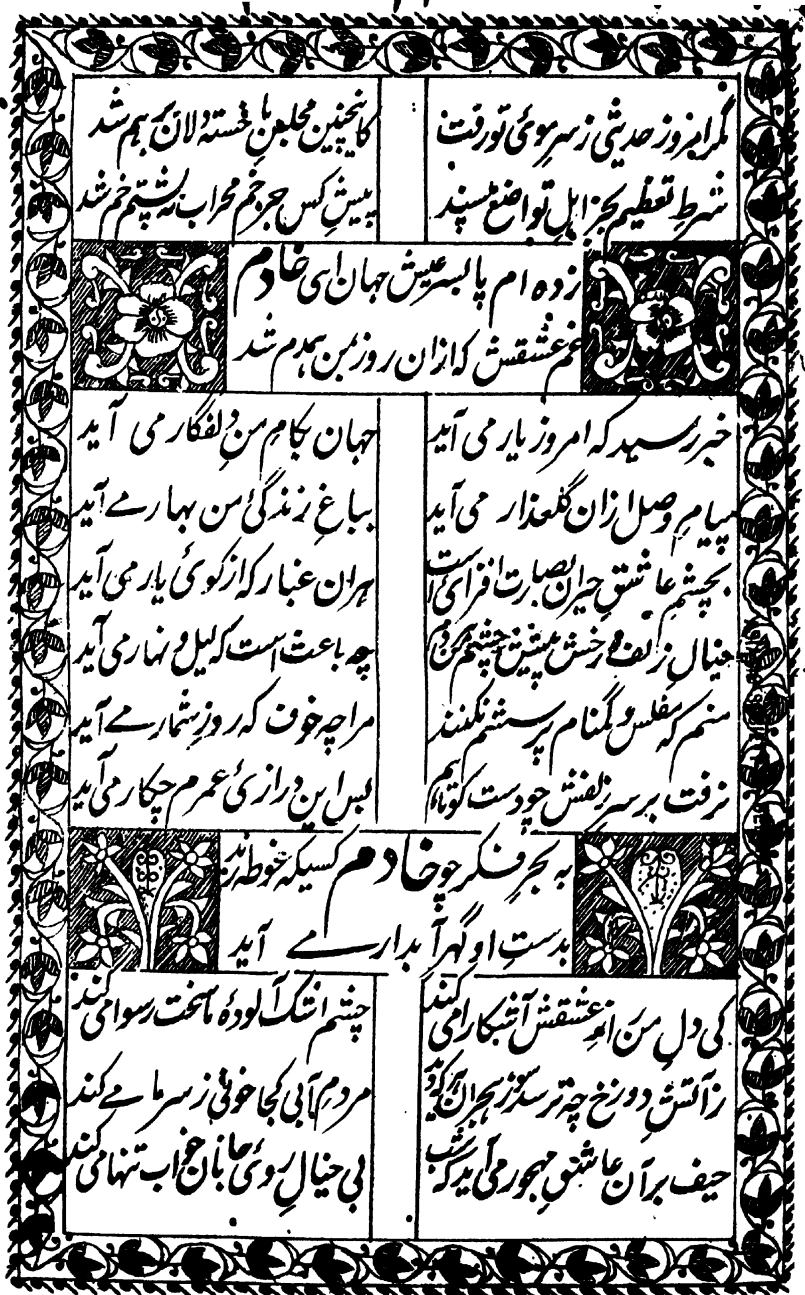 مگر امروز حدیثی ز سر موی تو رفت
کاینچنین مجلس ما خسته دلان برهم شد
شرطِ تعظیم بجز اهلِ تواضع مپسند
پیشِ کس جز خمِ محراب نه پشتم خم شد
زده ام پا بسر عیش جهان ای خادم
غم عشقش که ازان روز بمن همدم شد
خبر رسید که امروز یار می آید
جهان بکامِ منِ دلفگار می آید
پیامِ وصل ازان گلعذار می آید
بباغِ زندگیٔ من بهار مے آید
بچشمِ عاشقِ حیران بصارت افزای است
هران غبار که از کویٔ یار می آید
خیالِ زلف و رخش پیشِ چشمِ من هردم
چه باعث است که لیل و نهار می آید
منم که مفلس و گمنام پرسشم نکنند
مرا چه خوف که روزِ شمار مے آید
نرفت بر سرِ زلفش چو دست کوتاهم
پس این درازیٔ عمرم چکار می آید
به بحرِ فکر چو خادم کسیکه غوطه زند
بدستِ او گهر آبدار مے آید
کی دلِ من رازِ عشقش آشکارا می کند
چشم اشک آلودهٔ ما سخت رسوا می کند
ز آتشِ دوزخ چه ترسد سوزِ هجران هرکه دید
مردمِ آبی کجا خوفی ز سرما مے کند
حیف بر آن عاشقِ مهجور می آید که شب
بی خیالِ رویٔ جانان خواب تنها می کند